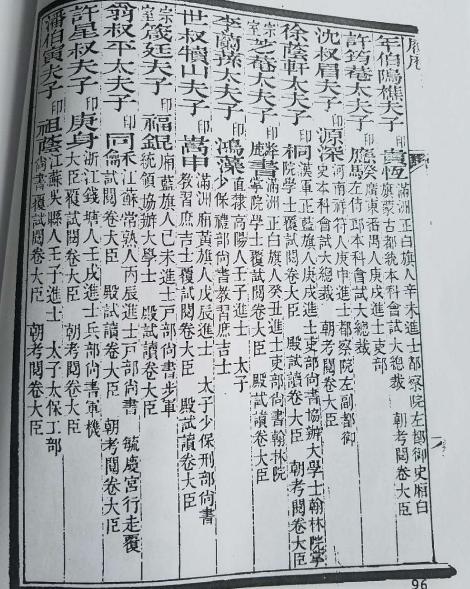 履歷
年伯鳴樵夫子 印 賁恆 滿洲正白旗人辛未進士都察院左都御史廂白
旗蒙古都統本科會試大總裁 朝考閱卷大臣
許筠菴太夫子 印 應騤 廣東番禺人庚戌進士吏部
左侍郎本科會試大總裁
沈叔眉夫子 印 源深 河南祥符人庚申進士都察院左副都御
史本科會試大總裁 朝考閱卷大臣
徐蔭軒太夫子 印 桐 漢軍正藍旗人庚戌進士吏部尚書協辦大學士翰林院掌
院學士覆試閱卷大臣 殿試讀卷大臣 朝考閱卷大臣
宗室芝菴太夫子 印 麟書 滿洲正白旗人癸丑進士吏部尚書翰林院
掌院學士覆試閱卷大臣 殿試讀卷大臣
李蘭孫太夫子 印 鴻藻 直隸高陽人壬子進士 太子
少保禮部尚書教習庶吉士
世叔犢山夫子 印 嵩申 滿洲廂黃旗人戊辰進士 太子少保刑部尚書
教習庶吉士覆試閱卷大臣 殿試讀卷大臣
宗室箴廷夫子 印 福錕 廂藍旗人己未進士戶部尚書步軍
統領協辦大學士 殿試讀卷大臣
翁叔平太夫子 印 同龢 江蘇常熟人丙辰進士戶部尚書 毓慶宮行走覆
試閱卷大臣 殿試讀卷大臣 朝考閱卷大臣
許星叔夫子 印 庚身 浙江錢塘人壬戌進士兵部尚書軍機
大臣覆試閱卷大臣 朝考閱卷大臣
潘伯寅夫子 印 祖蔭 江蘇吳縣人壬子進士 太子太保工部
尚書覆試閱卷大臣 朝考閱卷大臣
96